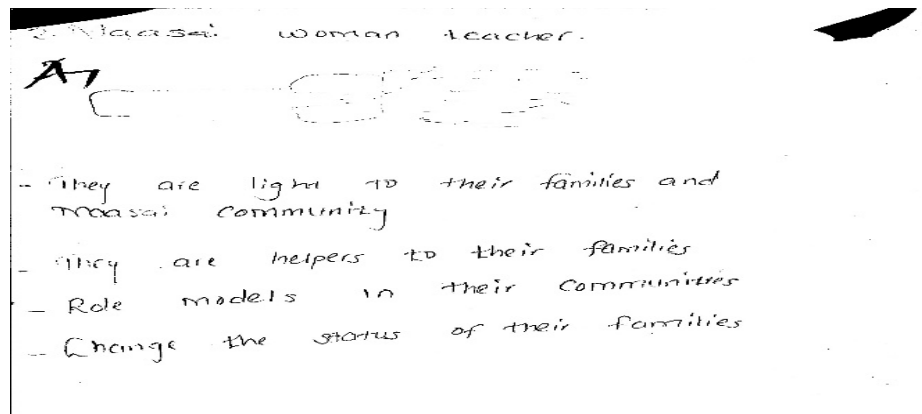 2. Maasai woman teacher.
A7
- They are light to their families and
maasai community
- They are helpers to their families
- Role models in their communities
- Change the status of their families